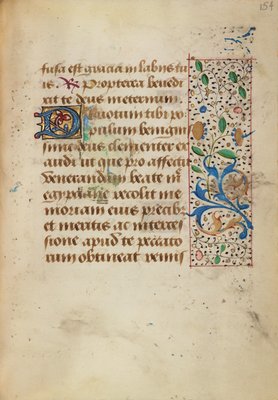 154
fusa est gracia in labiis tu
is. R. Propterea benedi
xit te deus in eternum.
Devotum tibi po
pulum benignis
sime deus clementer ex
audi ut que pro affectu
venerandam beate m
egypciane recolit me
moriam eius precibz
et meritis ac interces
sione apud te peccato
rum obtineat venis